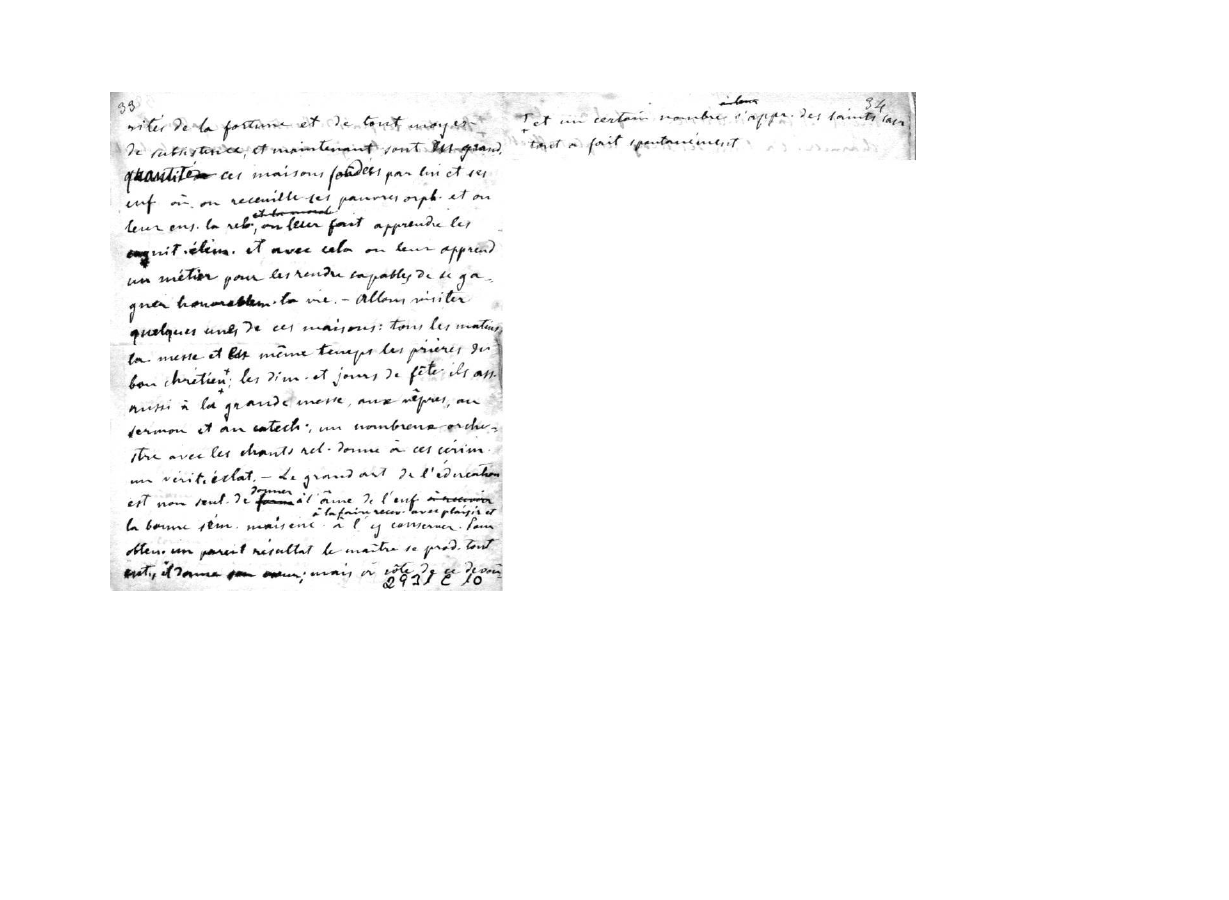 33
rités de la fortune et de tout moyen
de subsistence, et maintenant sont les grand
quantité ces maisons fondées par lui et ses
enf où on receuille ses pauvres orph. et on
et la moral
leur ens. la rel., on leur fait apprendre les
élém. et avec cela on leur apprend
un métier pour les rendre capables de se ga-
gner honorablem. la vie. – Allons visiter
quelques unes de ces maisons: tous les matins
la messe et même temps les prières du
bon chrétien +; les dim. et jours de fête ils ass.
aussi à la grande messe, aux vêpres, au
sermon et au catech., un nombreux orche-
stre avec les chants rel. donne à ces cérim.
un vérit. éclat. – Le grand art de l'éducation
donner
est non seul. de forme à l'âme de l'enf à recevoir
à la faire recev. avec plaisir et
la bonne sém. mais enc. à l'y conserver. Pour
obten. un pareil résultat le maître se prod. tout
ent., il donne son coeur; mais à côte de ce devou-
2931 C 10
34
à leur
+ et un certain nombre s'appr. des saints sacr
tout a fait spontanément